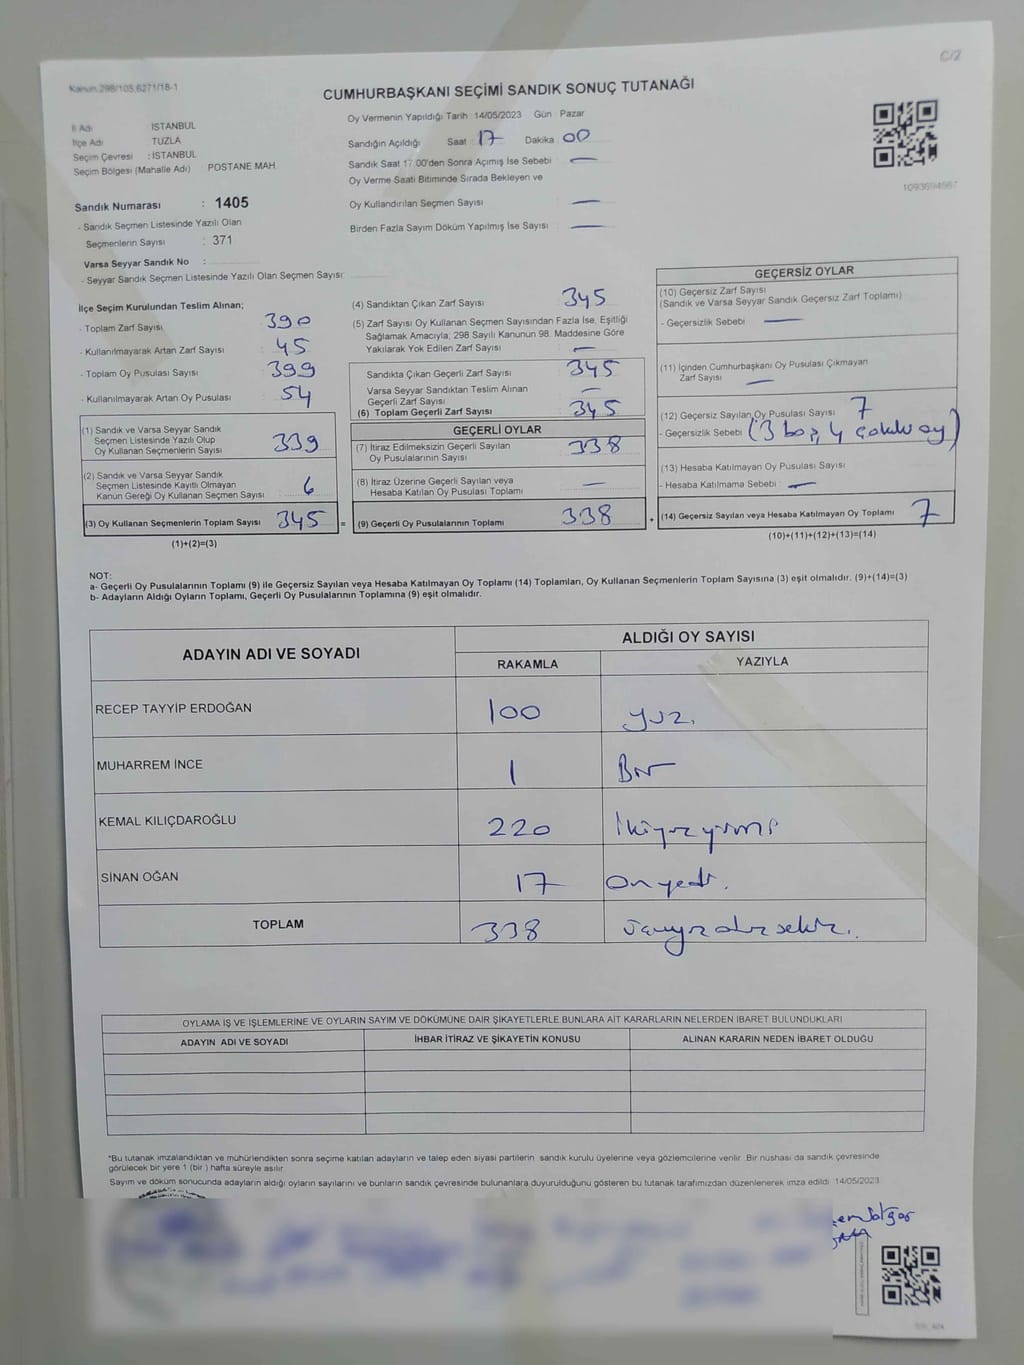 C/2
Kanun 298/105,6271/18-1
CUMHURBAŞKANI SEÇİMİ SANDIK SONUÇ TUTANAĞI
İl Adı : İSTANBUL
İlçe Adı : TUZLA
Seçim Çevresi : İSTANBUL
Seçim Bölgesi (Mahalle Adı) POSTANE MAH.
Sandık Numarası : 1405
- Sandık Seçmen Listesinde Yazılı Olan
Seçmenlerin Sayısı : 371
Varsa Seyyar Sandık No :
- Seyyar Sandık Seçmen Listesinde Yazılı Olan Seçmen Sayısı:
Oy Vermenin Yapıldığı Tarih : 14/05/2023 Gün : Pazar
Sandığın Açıldığı Saat : 17 Dakika : 00
Sandık Saat 17:00'den Sonra Açımış İse Sebebi : —
Oy Verme Saati Bitiminde Sırada Bekleyen ve
Oy Kullandırılan Seçmen Sayısı : —
Birden Fazla Sayım Döküm Yapılmış İse Sayısı : —
İlçe Seçim Kurulundan Teslim Alınan;
- Toplam Zarf Sayısı : 390
- Kullanılmayarak Artan Zarf Sayısı : 45
- Toplam Oy Pusulası Sayısı : 399
- Kullanılmayarak Artan Oy Pusulası : 54
(1) Sandık ve Varsa Seyyar Sandık
Seçmen Listesinde Yazılı Olup
Oy Kullanan Seçmenlerin Sayısı : 339
(2) Sandık ve Varsa Seyyar Sandık
Seçmen Listesinde Kayıtlı Olmayan
Kanun Gereği Oy Kullanan Seçmen Sayısı : 6
(3) Oy Kullanan Seçmenlerin Toplam Sayısı : 345 =
(1)+(2)=(3)
(4) Sandıktan Çıkan Zarf Sayısı : 345
(5) Zarf Sayısı Oy Kullanan Seçmen Sayısından Fazla İse, Eşitliği
Sağlamak Amacıyla; 298 Sayılı Kanunun 98. Maddesine Göre
Yakılarak Yok Edilen Zarf Sayısı : —
Sandıkta Çıkan Geçerli Zarf Sayısı : 345
Varsa Seyyar Sandıktan Teslim Alınan
Geçerli Zarf Sayısı : —
(6) Toplam Geçerli Zarf Sayısı : 345
GEÇERLİ OYLAR
(7) İtiraz Edilmeksizin Geçerli Sayılan
Oy Pusulalarının Sayısı : 338
(8) İtiraz Üzerine Geçerli Sayılan veya
Hesaba Katılan Oy Pusulası Toplamı : —
(9) Geçerli Oy Pusulalarının Toplamı : 338 +
1093694667
GEÇERSİZ OYLAR
(10) Geçersiz Zarf Sayısı
(Sandık ve Varsa Seyyar Sandık Geçersiz Zarf Toplamı)
- Geçersizlik Sebebi : —
(11) İçinden Cumhurbaşkanı Oy Pusulası Çıkmayan
Zarf Sayısı : —
(12) Geçersiz Sayılan Oy Pusulası Sayısı : 7
- Geçersizlik Sebebi : (3 boş, 4 çoklu oy)
(13) Hesaba Katılmayan Oy Pusulası Sayısı :
- Hesaba Katılmama Sebebi : —
(14) Geçersiz Sayılan veya Hesaba Katılmayan Oy Toplamı : 7
(10)+(11)+(12)+(13)=(14)
NOT:
a- Geçerli Oy Pusulalarının Toplamı (9) ile Geçersiz Sayılan veya Hesaba Katılmayan Oy Toplamı (14) Toplamları, Oy Kullanan Seçmenlerin Toplam Sayısına (3) eşit olmalıdır. (9)+(14)=(3)
b- Adayların Aldığı Oyların Toplamı, Geçerli Oy Pusulalarının Toplamına (9) eşit olmalıdır.
ADAYIN ADI VE SOYADI ALDIĞI OY SAYISI
RAKAMLA YAZIYLA
RECEP TAYYİP ERDOĞAN 100 yüz.
MUHARREM İNCE 1 Bir
KEMAL KILIÇDAROĞLU 220 İkiyüzyirmi
SİNAN OĞAN 17 Onyedi.
TOPLAM 338 üçyüzotuzsekiz.
OYLAMA İŞ VE İŞLEMLERİNE VE OYLARIN SAYIM VE DÖKÜMÜNE DAİR ŞİKAYETLERLE BUNLARA AİT KARARLARIN NELERDEN İBARET BULUNDUKLARI
ADAYIN ADI VE SOYADI İHBAR İTİRAZ VE ŞİKAYETİN KONUSU ALINAN KARARIN NEDEN İBARET OLDUĞU
*Bu tutanak imzalandıktan ve mühürlendikten sonra seçime katılan adayların ve talep eden siyasi partilerin sandık kurulu üyelerine veya gözlemcilerine verilir. Bir nüshası da sandık çevresinde
görülecek bir yere 1 (bir ) hafta süreyle asılır.
Sayım ve döküm sonucunda adayların aldığı oyların sayılarını ve bunların sandık çevresinde bulunanlara duyurulduğunu gösteren bu tutanak tarafımızdan düzenlenerek imza edildi. 14/05/2023